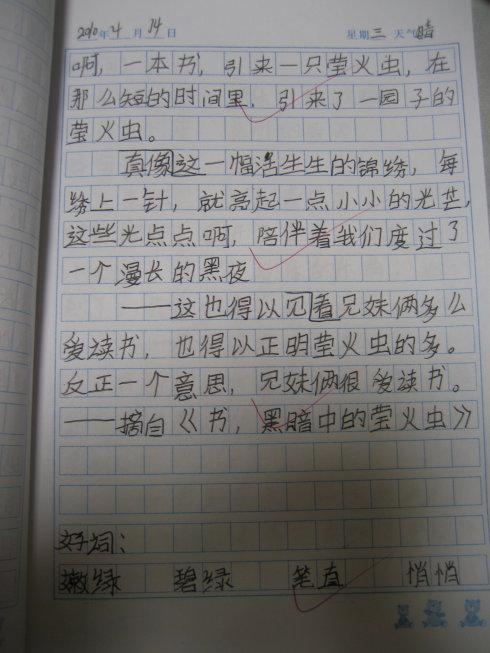 2010年4月14日 星期三 天气晴
啊，一本书，引来一只萤火虫，在
那么短的时间里，引来了一园子的
萤火虫。
真像这一幅活生生的锦绣，每
绣上一针，就亮起一点小小的光芒，
这些光点点啊，陪伴着我们度过了
一个漫长的黑夜
——这也得以见看兄妹俩多么
爱读书，也得以正明萤火虫的多。
反正一个意思，兄妹俩很爱读书。
——摘自《书，黑暗中的萤火虫》
好词：
嫩绿 碧绿 笔直 悄悄